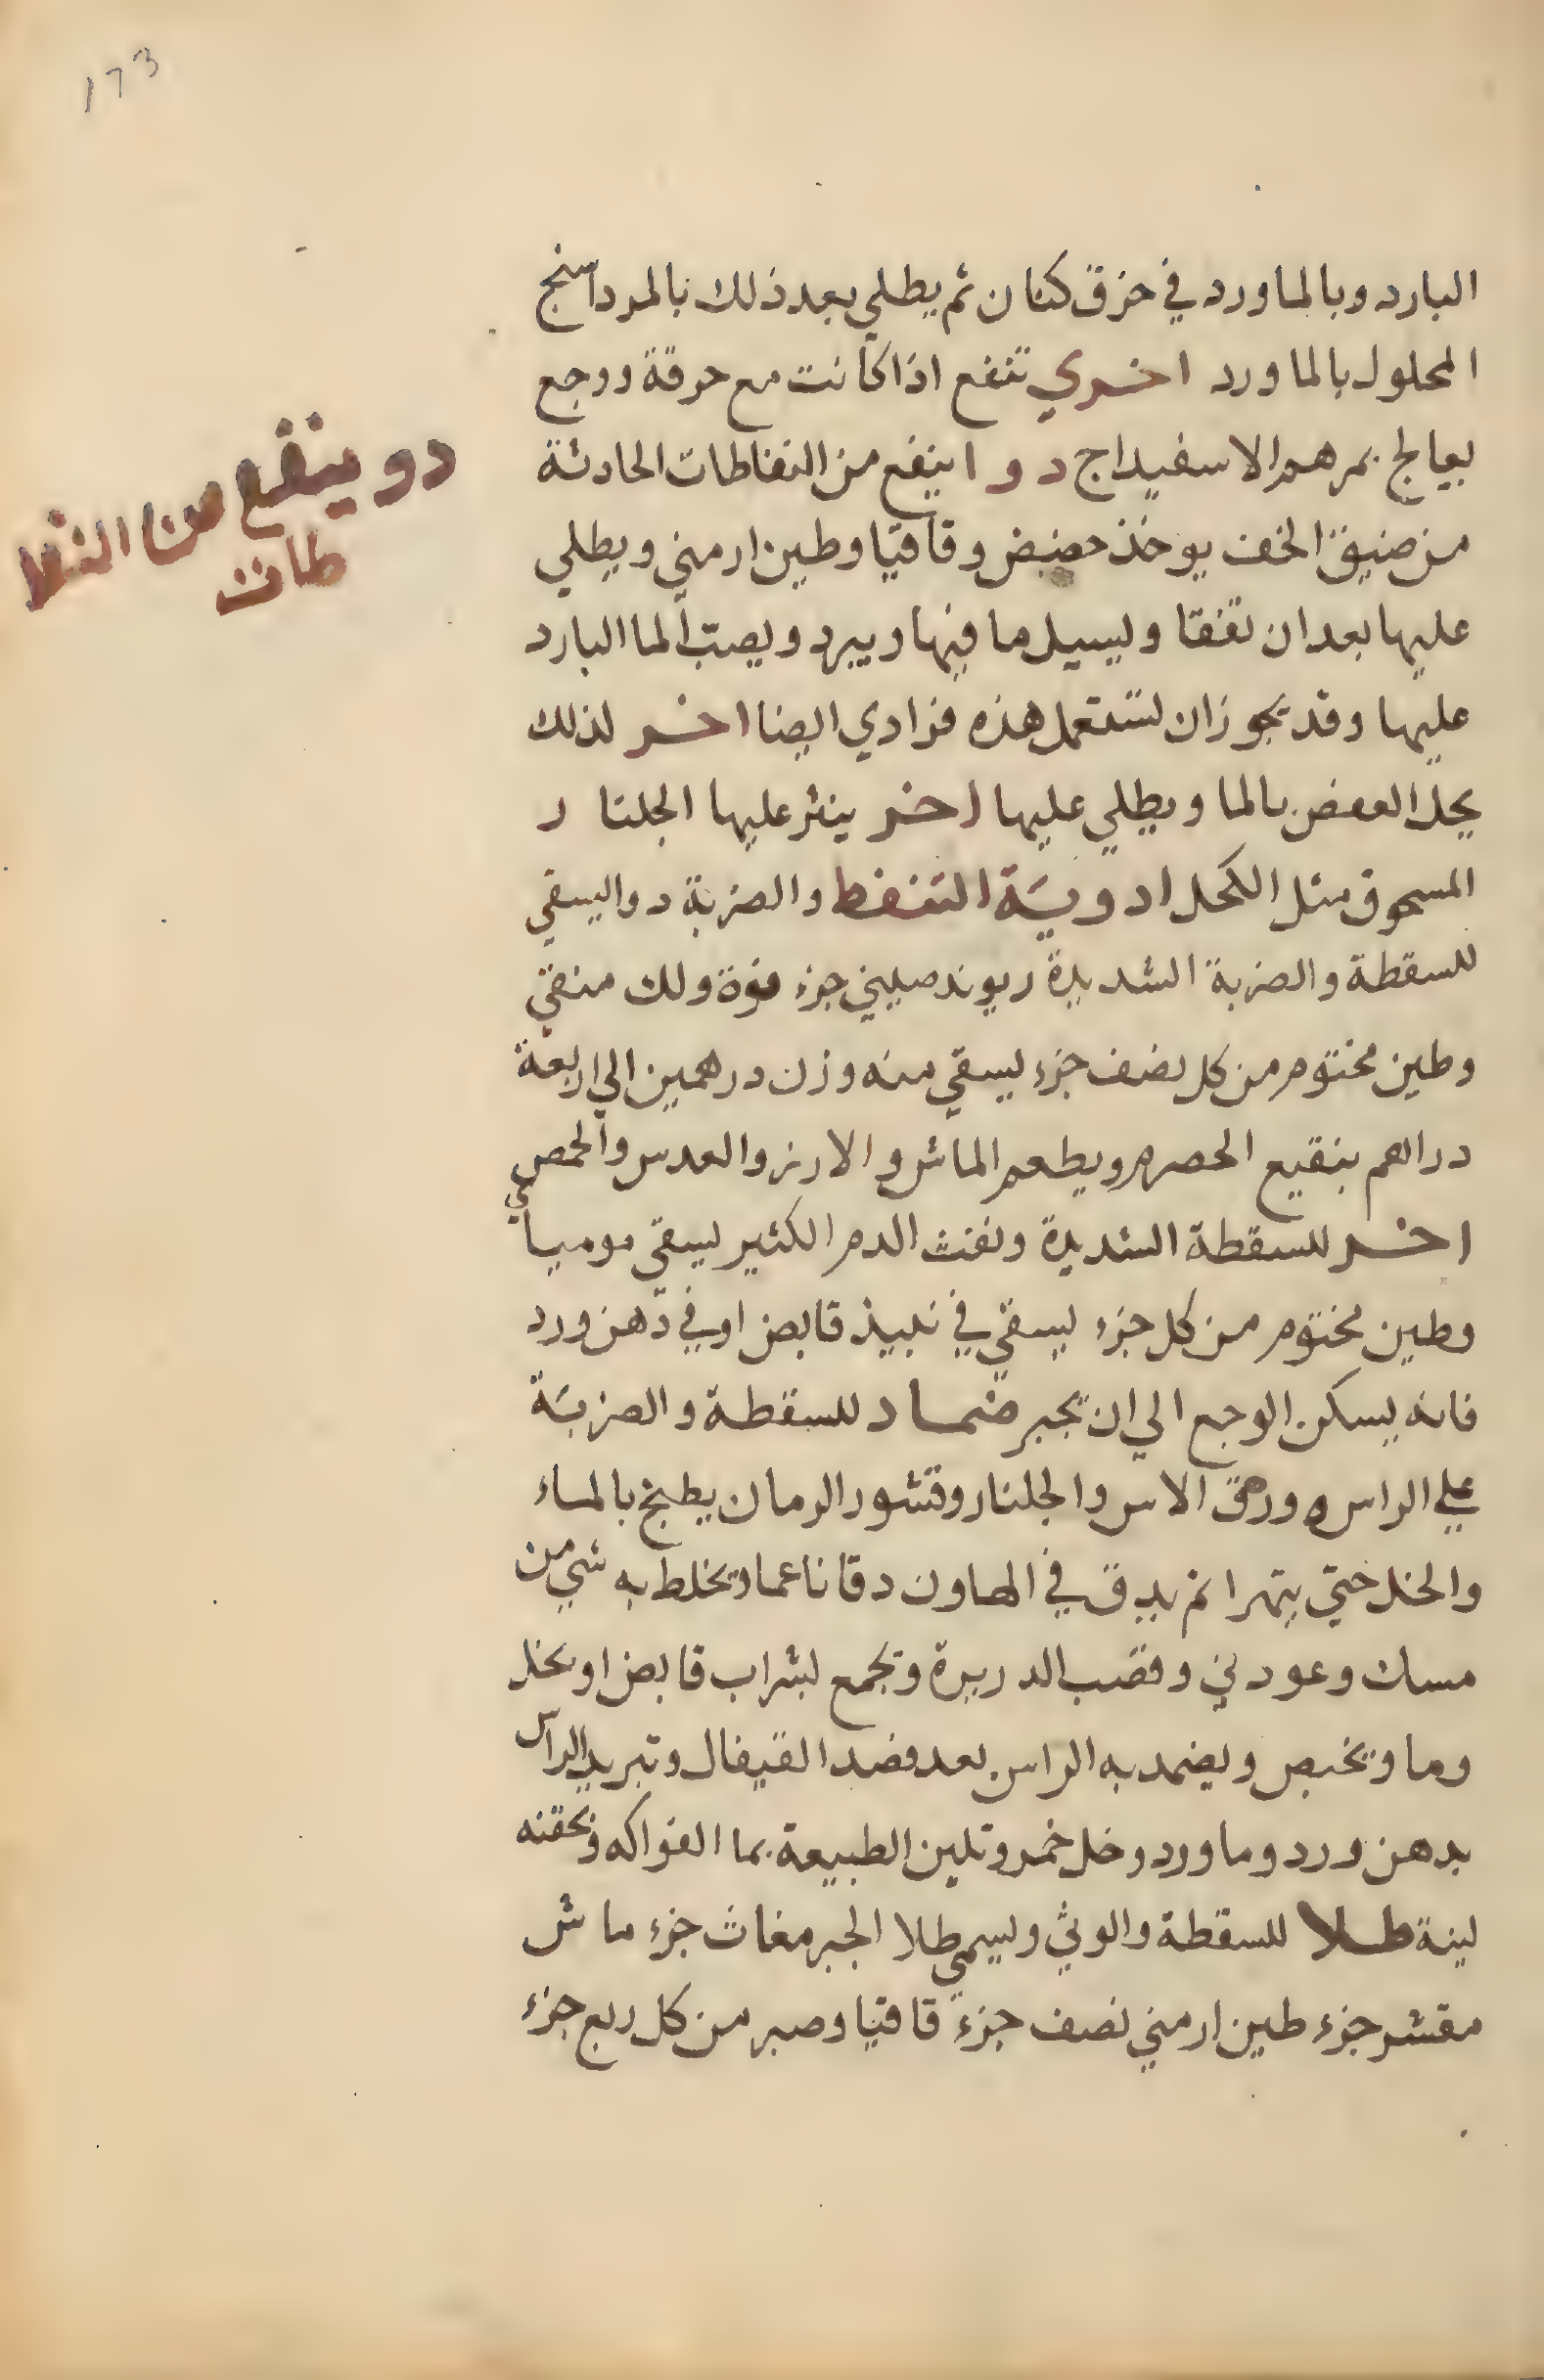 173
البارد وبالماورد في خرق كتان ثم يطلي بعد ذلك بالمرداسنج
المحلول بالماورد اخري تنفع اذا كانت مع حرقة ووجع
يعالج بمرهم الاسفيداج دوا ينفع من النفاطات الحادثة
من ضيق الخف يوخذ حضض وقاقيا وطين ارمني ويطلي
عليها بعد ان تفقا ويسيل ما فيها ويبرد ويصب الما البارد
عليها وقد يجوز ان تستعمل هذه فرادي ايضا اخر لذلك
يحل العفص بالما ويطلي عليها اخر ينثر عليها الجلنار
المسحوق مثل الكحل ادوية التنفط والضربة دوا يسقي
للسقطة والضربة الشديدة ريوند صيني جزء فوة ولك منقي
وطين مختوم من كل نصف جزء يسقي منه وزن درهمين الي اربعة
دراهم بنقيع الحصرم ويطعم الماش والارز والعدس والحمص
اخر للسقطة الشديدة ونفث الدم الكثير يسقي موميائي
وطين مختوم من كل جزء يسقي في نبيذ قابض او في دهن ورد
فانه يسكن الوجع الي ان تجبر ضماد للسقطة والضربة
علي الراس ورق الاس والجلنار وقشور الرمان يطبخ بالماء
والخل حتي يتهرا ثم يدق في الهاون دقا ناعما ويخلط به شي من
مسك وعود ني وقصب الدريرة وتجمع بشراب قابض او بخل
وما ويخبص ويضمد به الراس بعد فصد القيفال وتبريد الراس
بدهن ورد وماورد وخل خمر وتلين الطبيعة بما الفواكه وبحقنه
لينة طلا للسقطة والوثي ويسمي طلا الجبر مغاث جزء ماش
مقشر جزء طين ارمني نصف جزء قاقيا وصبر من كل ربع جزء
دو ينفع من النفا
طات